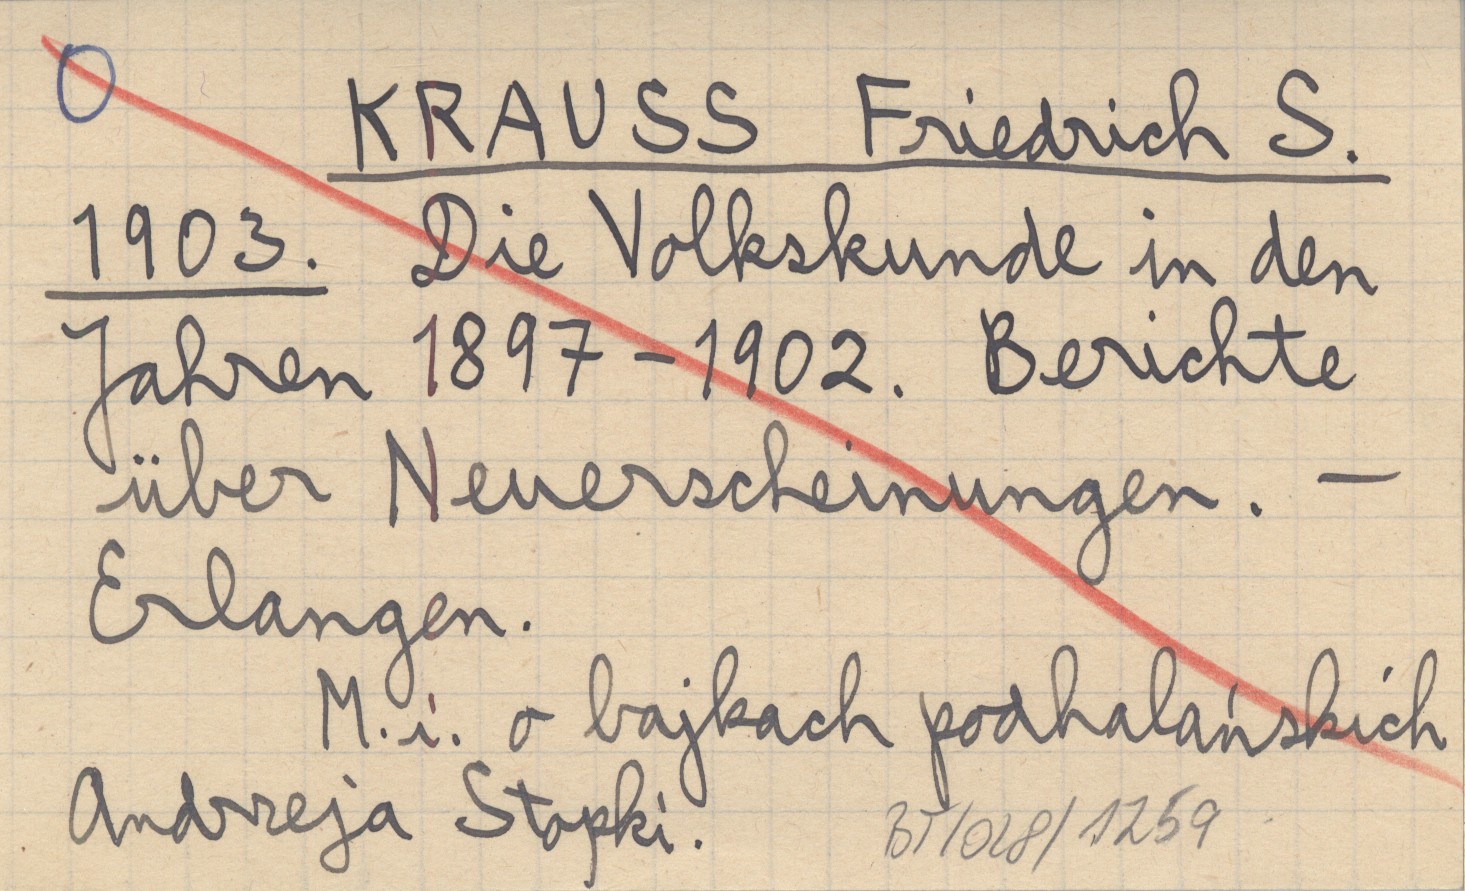 KRAUSS Friedrich S.
1903. Die Volkskunde in den
Jahren 1897-1902. Berichte
über Neuerscheinungen. —
Erlangen.
M.i. o bajkach podhalańskich
Andrzeja Stopki.
BT/028/1259